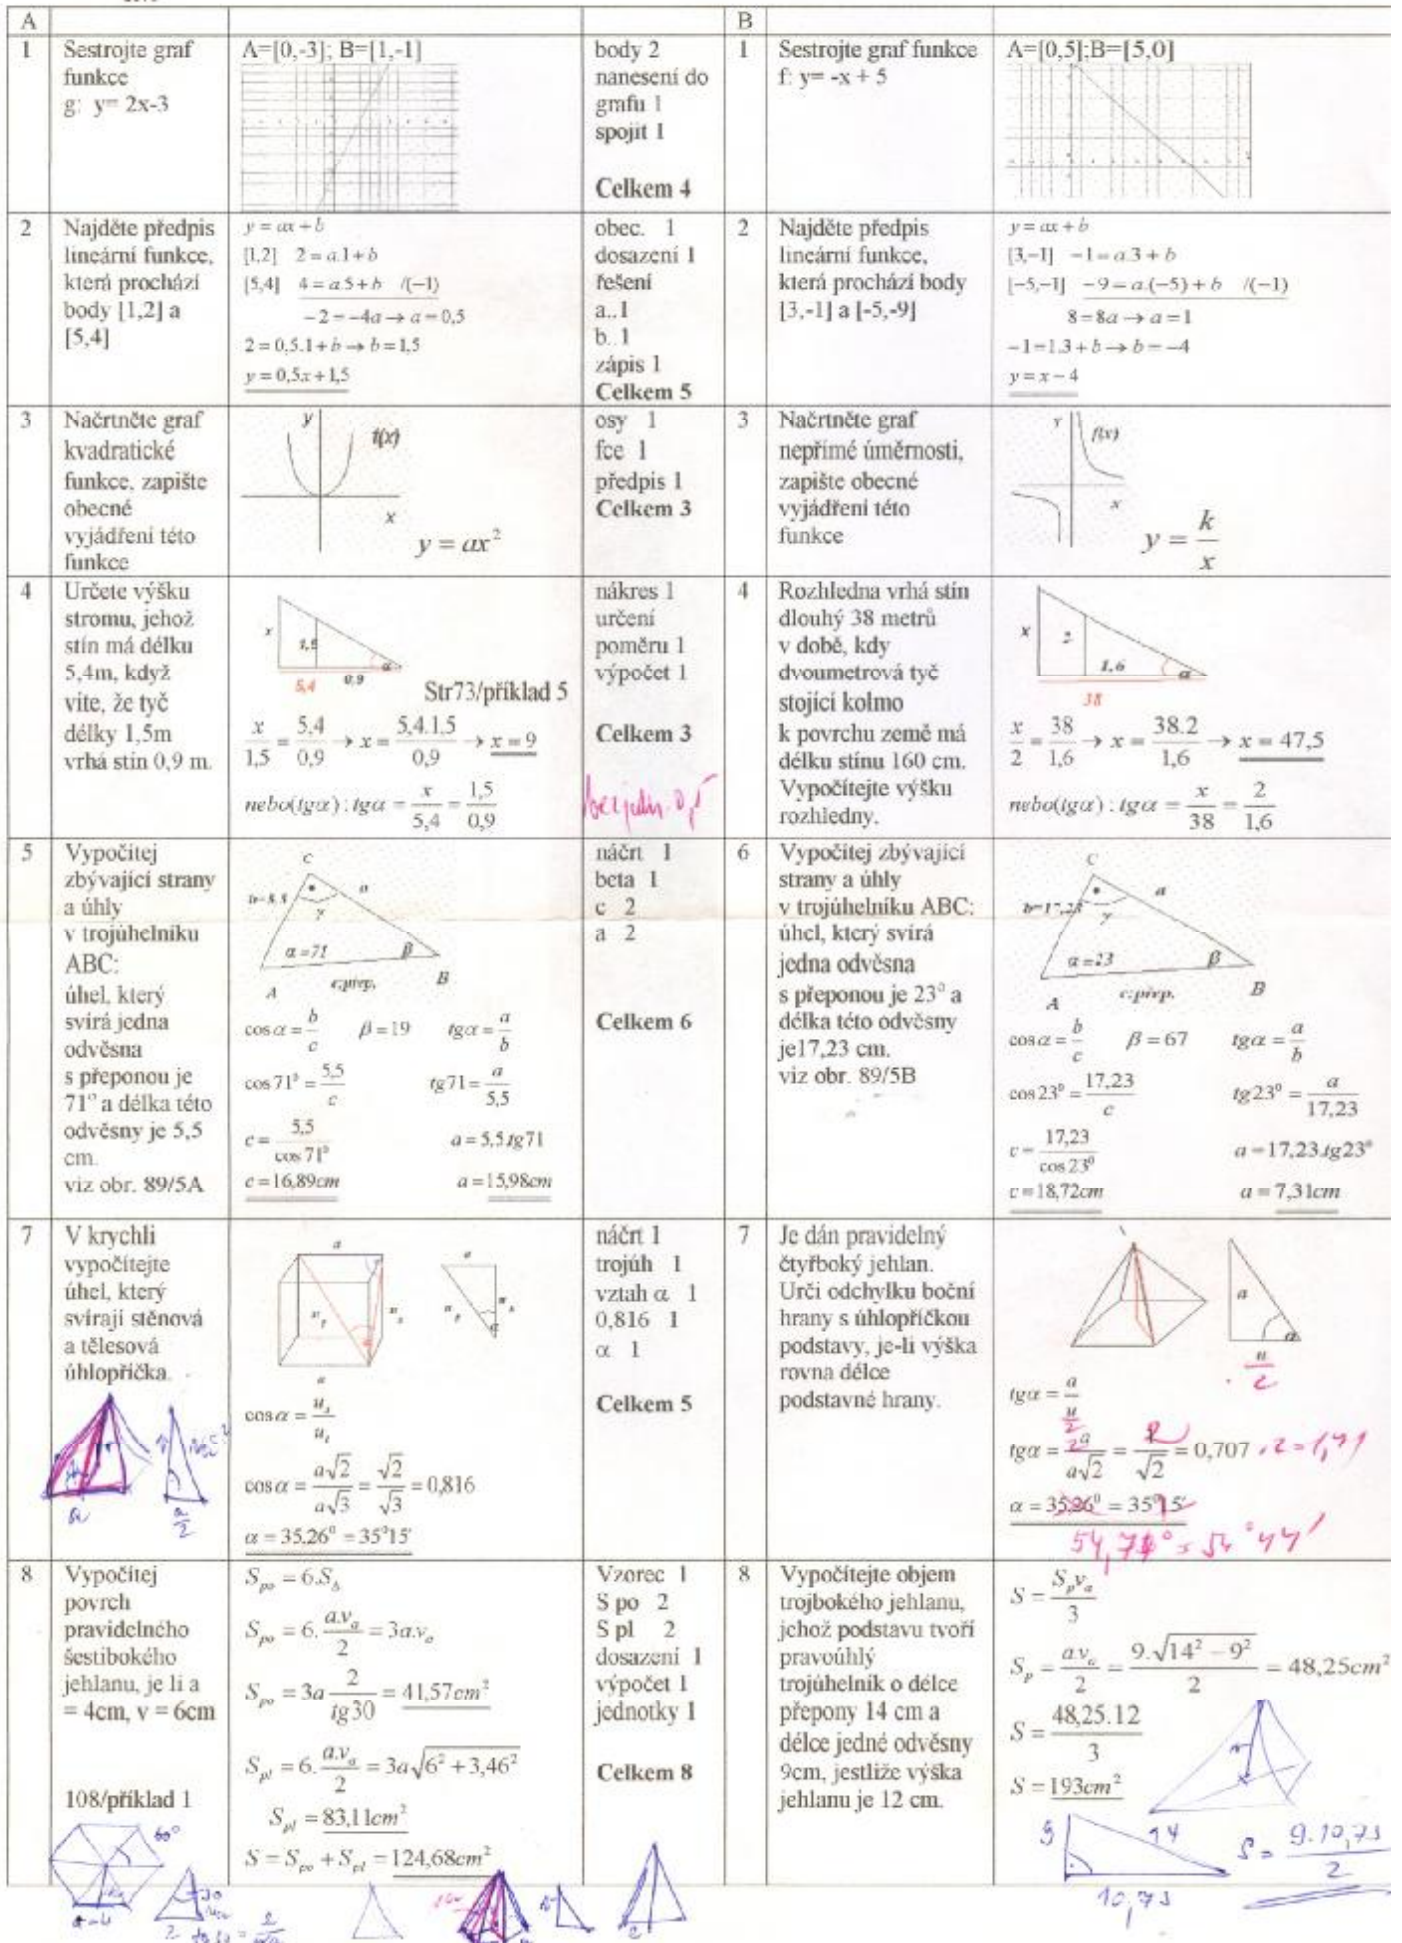 A
B
1
Sestrojte graf
funkce
g: y= 2x-3
A=[0,-3]; B=[1,-1]
body 2
nanesení do
grafu 1
spojit 1
Celkem 4
1
Sestrojte graf funkce
f: y= -x + 5
A=[0,5];B=[5,0]
2
Najděte předpis
lineární funkce,
která prochází
body [1,2] a
[5,4]
y = ax + b
[1,2] 2 = a.1 + b
[5,4] 4 = a.5 + b /(−1)
−2 = −4a → a = 0,5
2 = 0,5.1 + b → b = 1,5
y = 0,5x + 1,5
obec. 1
dosazení 1
řešení
a..1
b..1
zápis 1
Celkem 5
2
Najděte předpis
lineární funkce,
která prochází body
[3,-1] a [-5,-9]
y = ax + b
[3,−1] −1 = a.3 + b
[−5,−1] −9 = a.(−5) + b /(−1)
8 = 8a → a = 1
−1 = 1.3 + b → b = −4
y = x − 4
3
Načrtněte graf
kvadratické
funkce, zapište
obecné
vyjádření této
funkce
y
f(x)
x
y = ax²
osy 1
fce 1
předpis 1
Celkem 3
3
Načrtněte graf
nepřímé úměrnosti,
zapište obecné
vyjádření této
funkce
Y
f(x)
x
y = k/x
4
Určete výšku
stromu, jehož
stín má délku
5,4m, když
víte, že tyč
délky 1,5m
vrhá stín 0,9 m.
x
1,5
α
5,4 0,9
Str73/příklad 5
x/1,5 = 5,4/0,9 → x = 5,4.1,5/0,9 → x = 9
nebo(tgα): tgα = x/5,4 = 1,5/0,9
nákres 1
určení
poměru 1
výpočet 1
Celkem 3
4
Rozhledna vrhá stín
dlouhý 38 metrů
v době, kdy
dvoumetrová tyč
stojící kolmo
k povrchu země má
délku stínu 160 cm.
Vypočítejte výšku
rozhledny.
x
2
1,6
α
38
x/2 = 38/1,6 → x = 38.2/1,6 → x = 47,5
nebo(tgα): tgα = x/38 = 2/1,6
5
Vypočítej
zbývající strany
a úhly
v trojúhelníku
ABC:
úhel, který
svírá jedna
odvěsna
s přeponou je
71° a délka této
odvěsny je 5,5
cm.
viz obr. 89/5A
C
b=5,5
a
γ
α=71
β
A
c:přep.
B
cosα = b/c β = 19 tgα = a/b
cos71⁰ = 5,5/c tg71 = a/5,5
c = 5,5/cos71⁰ a = 5,5.tg71
c = 16,89cm a = 15,98cm
náčrt 1
beta 1
c 2
a 2
Celkem 6
6
Vypočítej zbývající
strany a úhly
v trojúhelníku ABC:
úhel, který svírá
jedna odvěsna
s přeponou je 23° a
délka této odvěsny
je17,23 cm.
viz obr. 89/5B
C
b=17,23
a
γ
α=23
β
A
c:přep.
B
cosα = b/c β = 67 tgα = a/b
cos23⁰ = 17,23/c tg23⁰ = a/17,23
c = 17,23/cos23⁰ a = 17,23.tg23⁰
c = 18,72cm a = 7,31cm
7
V krychli
vypočítejte
úhel, který
svírají stěnová
a tělesová
úhlopříčka.
a
a
cosα = u_s/u_t
cosα = a√2/a√3 = √2/√3 = 0,816
α = 35,26⁰ = 35⁰15'
náčrt 1
trojúh 1
vztah α 1
0,816 1
α 1
Celkem 5
7
Je dán pravidelný
čtyřboký jehlan.
Urči odchylku boční
hrany s úhlopříčkou
podstavy, je-li výška
rovna délce
podstavné hrany.
a
α
u/2
tgα = a/u/2
tgα = 2a/a√2 = 2/√2 = 0,707 .2=1,41
α = 35,26⁰ = 35⁰15'
54,74° = 54°44'
8
Vypočítej
povrch
pravidelného
šestibokého
jehlanu, je li a
= 4cm, v = 6cm
108/příklad 1
60°
a=4
S_po = 6.S_δ
S_po = 6.a.v_a/2 = 3a.v_a
S_po = 3a 2/tg30 = 41,57cm²
S_pl = 6.a.v_a/2 = 3a√6² + 3,46²
S_pl = 83,11cm²
S = S_po + S_pl = 124,68cm²
Vzorec 1
S po 2
S pl 2
dosazení 1
výpočet 1
jednotky 1
Celkem 8
8
Vypočítejte objem
trojbokého jehlanu,
jehož podstavu tvoří
pravoúhlý
trojúhelník o délce
přepony 14 cm a
délce jedné odvěsny
9cm, jestliže výška
jehlanu je 12 cm.
S = S_p v_a/3
S_p = a.v_a/2 = 9.√14² − 9²/2 = 48,25cm²
S = 48,25.12/3
S = 193cm²
9
14
10,73
S = 9.10,73/2